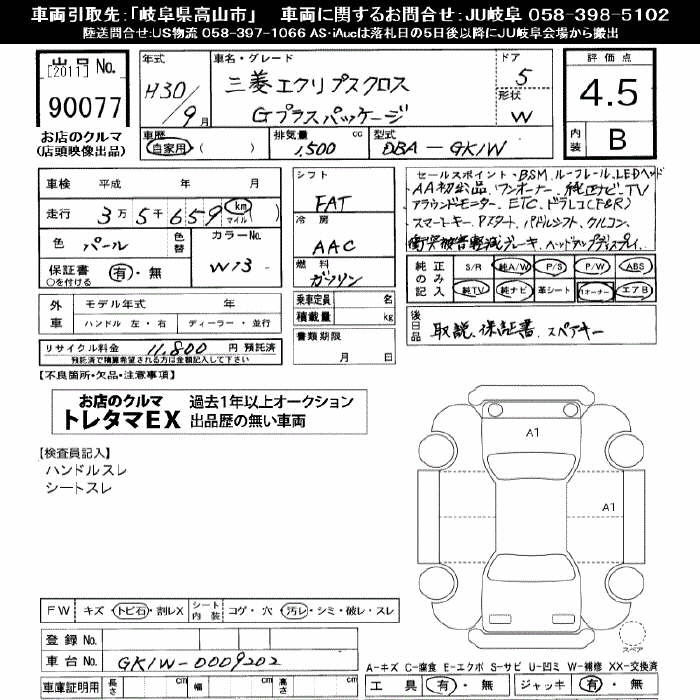 車両引取先:「岐阜県高山市」 車両に関するお問合せ:JU岐阜 058-398-5102
陸送問合せ:US物流 058-397-1066 AS・iAucは落札日の5日後以降にJU岐阜会場から搬出
出品 No.
[2011]
90077
お店のクルマ
(店頭映像出品)
年式
H30/9月
車名・グレード
三菱エクリプスクロス
Gプラスパッケージ
ドア
5
形状
W
評価点
4.5
内装
B
車歴
自家用 ( )
排気量 cc
1,500
型式
DBA-GK1W
車検 平成 年 月
走行 3万5千659 km マイル ( )
色 パール
色替
カラーNo.
W13
保証書 有・無
○を付ける
シフト
FAT
冷房
AAC
燃料
ガソリン
乗車定員 名
積載量 kg
書類期限
月 日
外車
モデル年式 年
ハンドル 左・右 ディーラー・並行
リサイクル料金 11,800 円 預託済
預託済で積算希望される方は金額記入して下さい
セールスポイント・BSM、ルーフレール、LEDヘッド
AA初出品、ワンオーナー、純正ナビ、TV
アラウンドモニター、ETC、ドラレコ(F&R)
スマートキー、Pスタート、パドルシフト、クルコン、
衝突被害軽減ブレーキ、ヘッドアップディスプレイ、
純正のみ記入
S/R 純A/W P/S P/W ABS
純TV 純ナビ 革シート 1オーナー エアB
後日品
取説、保証書、スペアキー
【不良箇所・欠品・注意事項】
お店のクルマ
トレタマEX
過去1年以上オークション
出品歴の無い車両
【検査員記入】
ハンドルスレ
シートスレ
A1
A1
スペア
FW キズ・トビ石・割レX
シート内装 コゲ・穴・汚レ・シミ・破レ・スレ
登録 No.
車台 No. GK1W-0009202
車庫証明用 長さ cm 幅 cm 高さ cm
A-キズ C-腐食 E-エクボ S-サビ U-凹ミ W-補修 XX-交換済
工具 有・無 ジャッキ 有・無